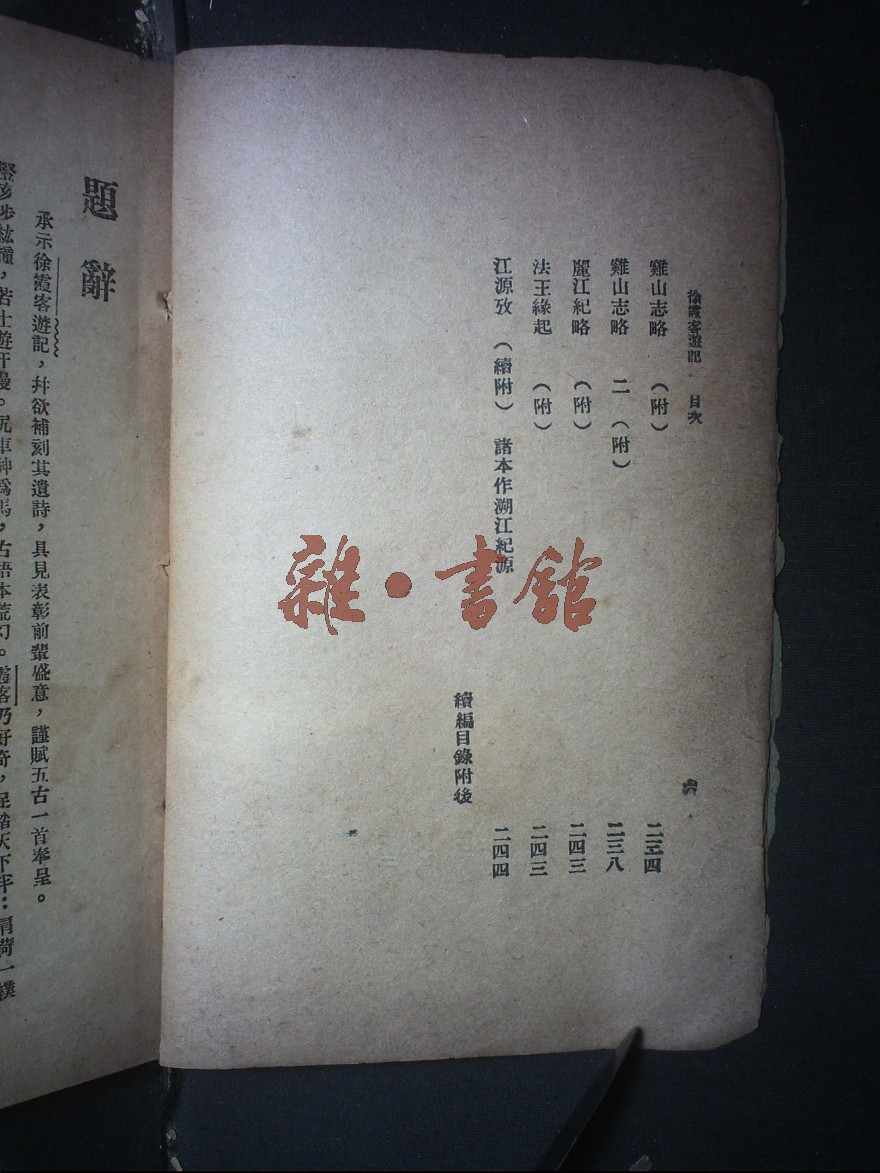 徐霞客遊記 目次
六
雞山志略 (附) 二三四
雞山志略 二 (附) 二三八
麗江紀略 (附) 二四三
法王緣起 (附) 二四三
江源攷 (續附) 諸本作溯江紀源 二四四
續編目錄附後
雜·書館
題辭
承示徐霞客遊記,幷欲補刻其遺詩,具見表彰前輩盛意,謹賦五古一首奉呈。
若士遊汗漫。尻車神爲馬,古語本荒幻。霞客乃好奇,足踏天下半:肩荷一襆